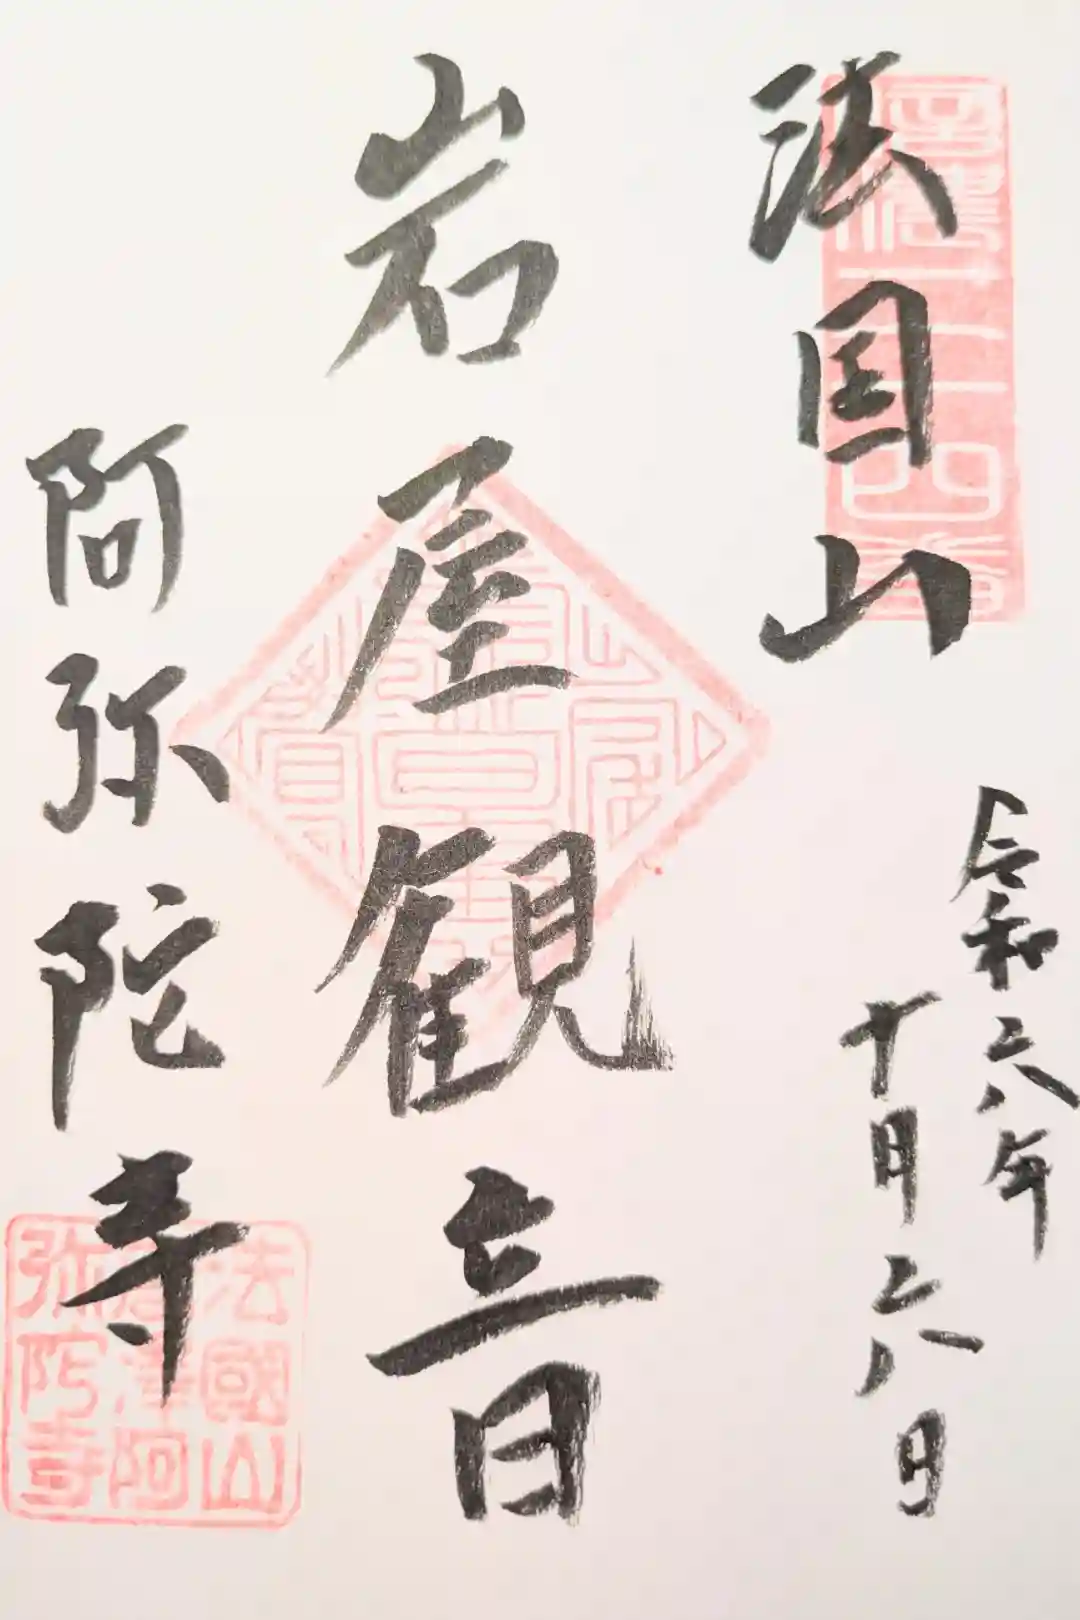 法国山
令和六年
十月六日
岩屋観音
阿弥陀寺
法國山
唐澤阿
弥陀寺